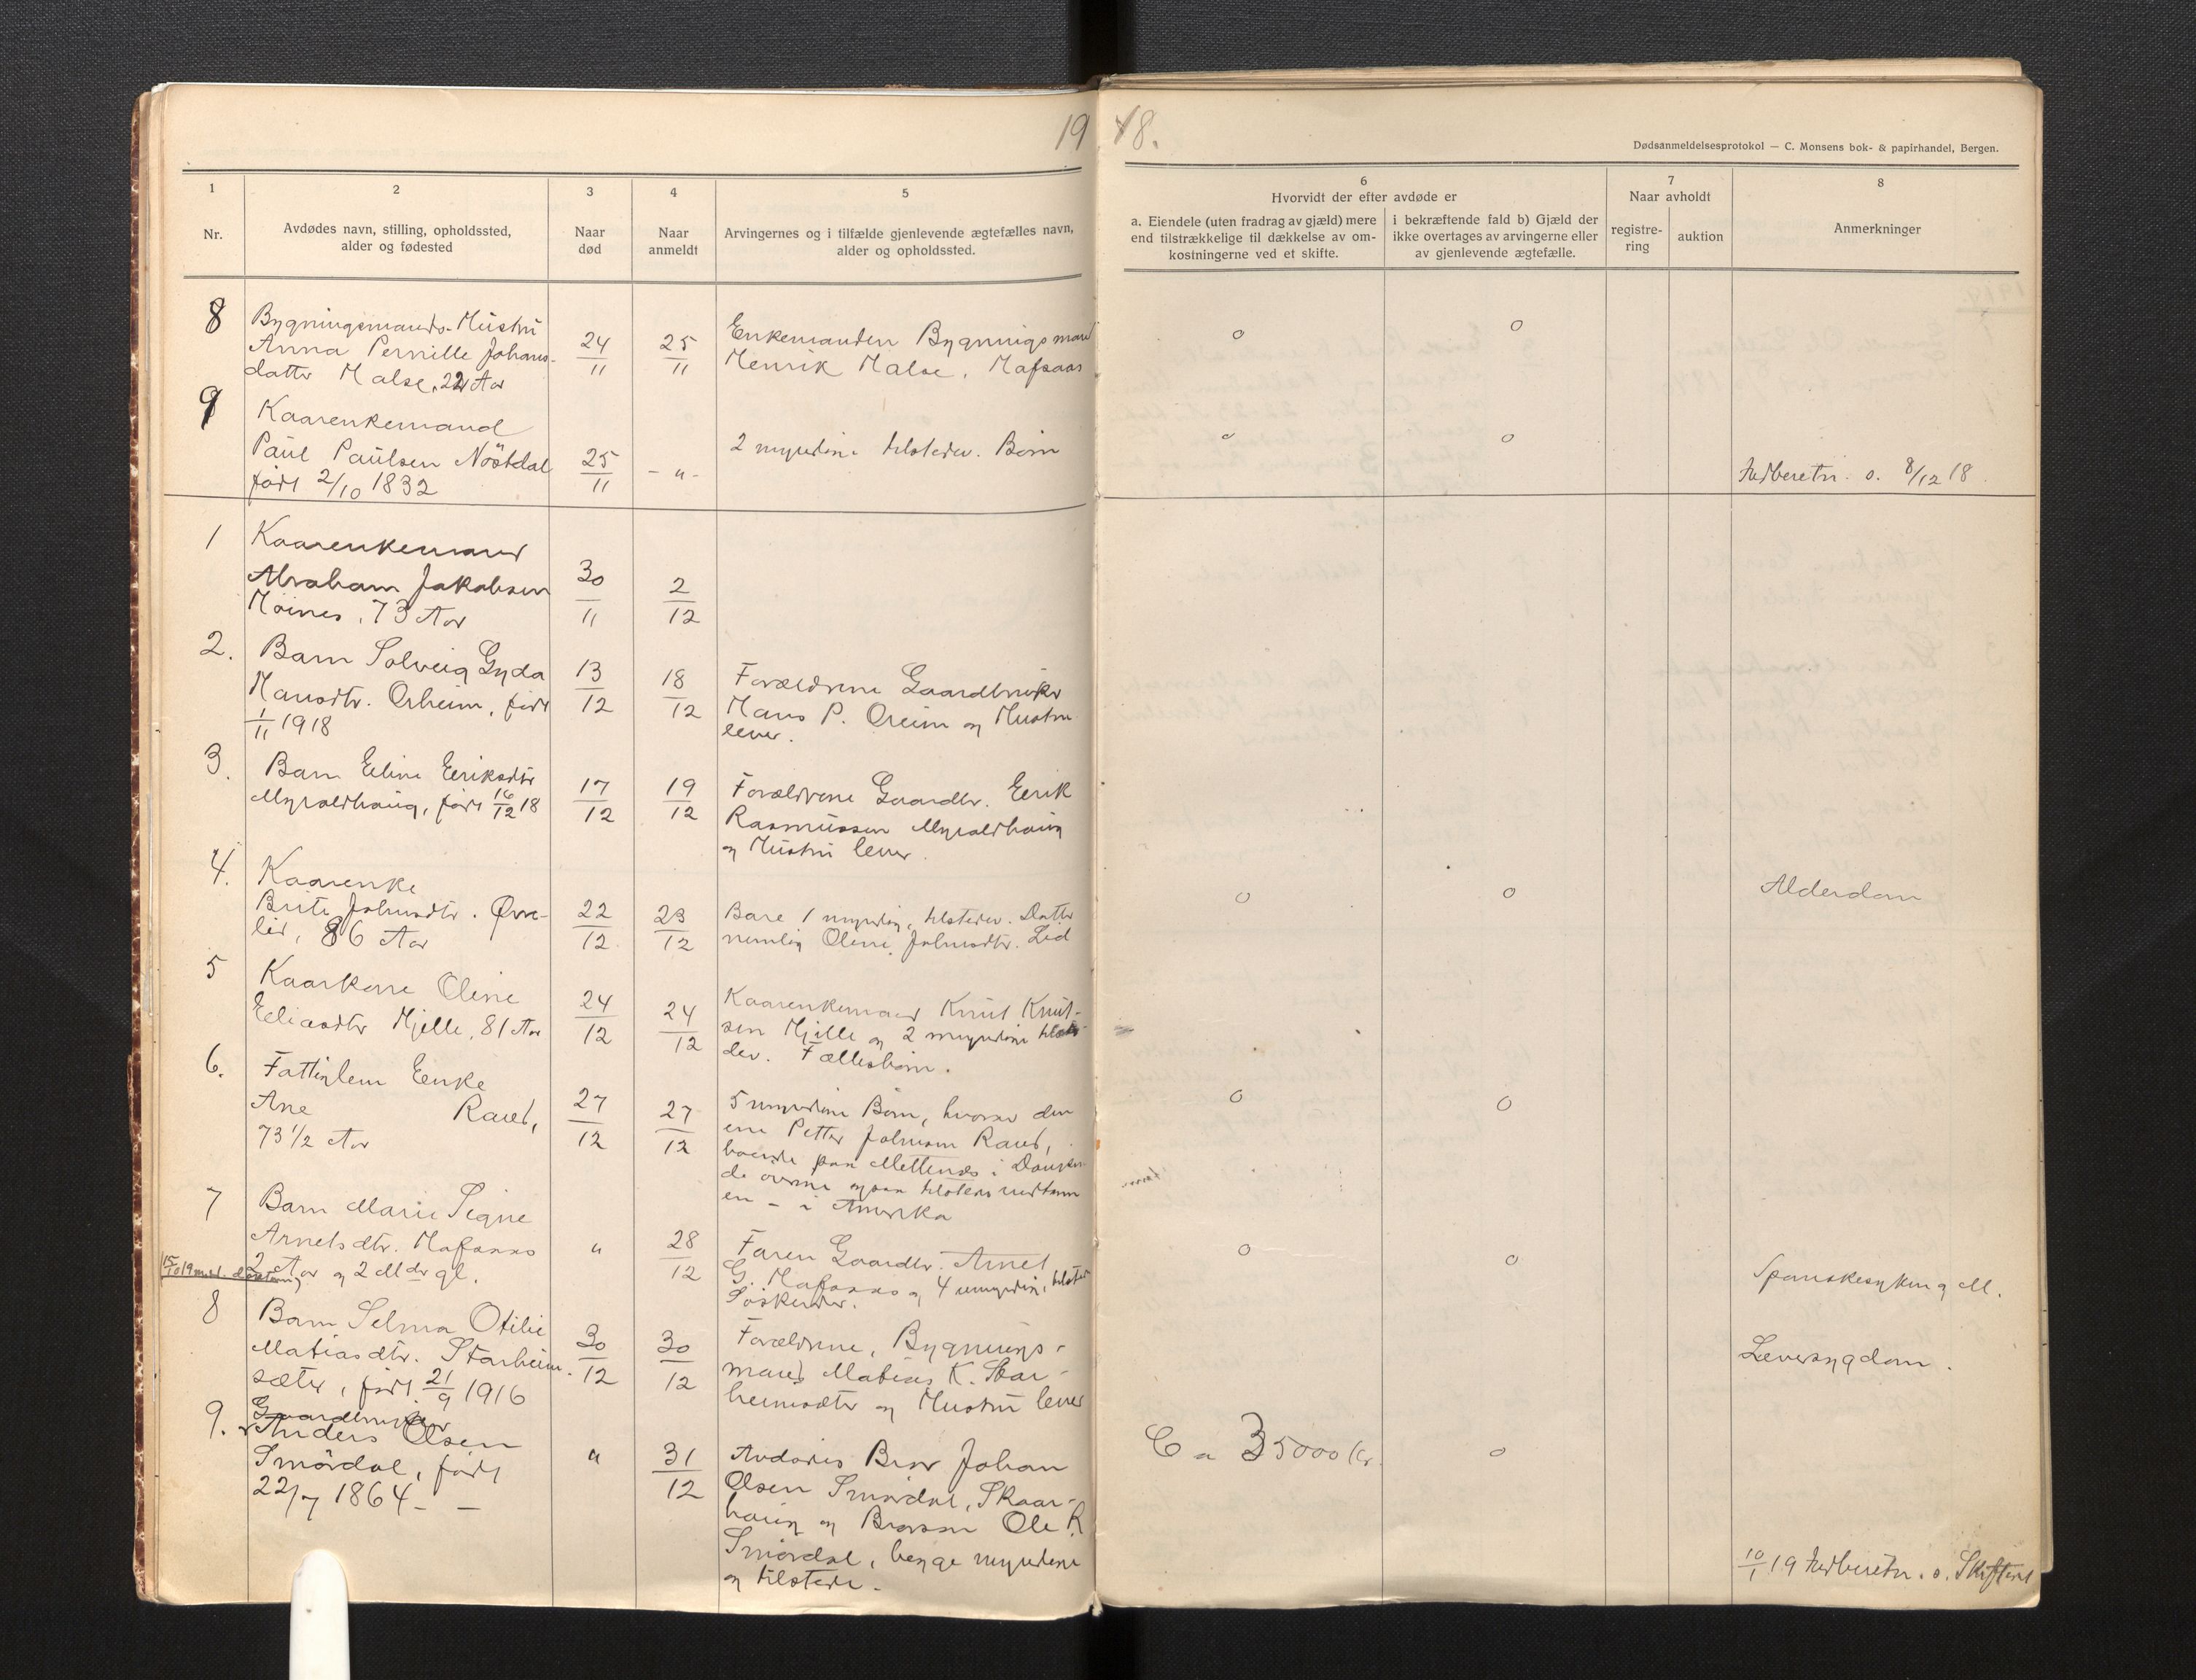 19 18.
Dødsanmeldelsesprotokol — C. Monsens bok- & papirhandel, Bergen.
1
Nr.
2
Avdødes navn, stilling, opholdssted,
alder og fødested
3
Naar
død
4
Naar
anmeldt
5
Arvingernes og i tilfælde gjenlevende ægtefælles navn,
alder og opholdssted.
6
Hvorvidt der efter avdøde er
a. Eiendele (uten fradrag av gjæld) mere
end tilstrækkelige til dækkelse av om-
kostningerne ved et skifte.
i bekræftende fald b) Gjæld der
ikke overtages av arvingerne eller
av gjenlevende ægtefælle.
7
Naar avholdt
registre-
ring
auktion
8
Anmerkninger
8
Bygningsmands-Hustru
Anna Pernille Johans-
datter Halse, 22 Aar
24/11
25/11
Enkemanden Bygningsmand
Henrik Halse, Hafsaas
o
o
9
Kaarenkemand
Paul Paulsen Nöstdal
født 2/10 1832
25/11
- " -
2 myndige tilstedev. Børn
o
o
Indberetn. s. 8/12 18.
1
Kaarenkemand
Abraham Jakobsen
Höines, 73 Aar
30/11
2/12
2.
Barn Solveig Gyda
Hansdtr. Orheim, født
1/11 1918
13/12
18/12
Forældrene Gaardbruker
Hans P. Oreim og Hustru
lever.
3.
Barn Eline Eeriksdtr
Myroldhaug, født 16/12 18
17/12
19/12
Forældrene Gaardbr. Eerik
Rasmussen Myroldhaug
og Hustru lever.
4.
Kaarenke
Brite Johnsdtr. Øvre-
lid, 86 Aar
22/12
23/12
Bare 1 myndig, tilstedev. Datter
nemlig Oline Johnsdtr. Lid
o
o
Alderdom
5
Kaarkone Oline
Eeliasdtr Hjelle, 81 Aar
24/12
24/12
Kaarenkemand Knut Knut-
sen Hjelle og 2 myndige tilste-
dev. Fællesbørn.
6.
Fattiglem Eenke
Ane Raud,
73 1/2 Aar
27/12
27/12
5 myndige Børn, hvorav den
ene Petter Johnson Raud,
boende paa Mettenes i
de øvrige ogsaa tilstede undtagen
en - i Amerika
o
o
7
Barn Marie Signe
Arnetsdtr. Hafsaas
2 Aar og 2 Mdr gl.
15/10 19
"
28/12
Faren Gaardbr. Arnet
G. Hafsaas og 4 umyndige, tilstedev
Söskende.
o
o
Spanskesyken g M.
8
Barn Selma Otilie
Matiasdtr. Starheim-
sæter, født 21/9 1916
30/12
30/12
Forældrene, Bygnings-
mand Matias K. Star-
heimsæter og Hustru lever
Leversygdom.
9.
Gaardbruker
Anders Olsen
Smördal, født
22/7 1864 - -
"
31/12
Avdødes Bror Johan
Olsen Smördal, Skaar-
haug og Brorsøn Ole R
Smördal, begge myndige
og tilstede.
Ca 35000 Kr.
o
10/1 19 Indberetn. s. Skifteret